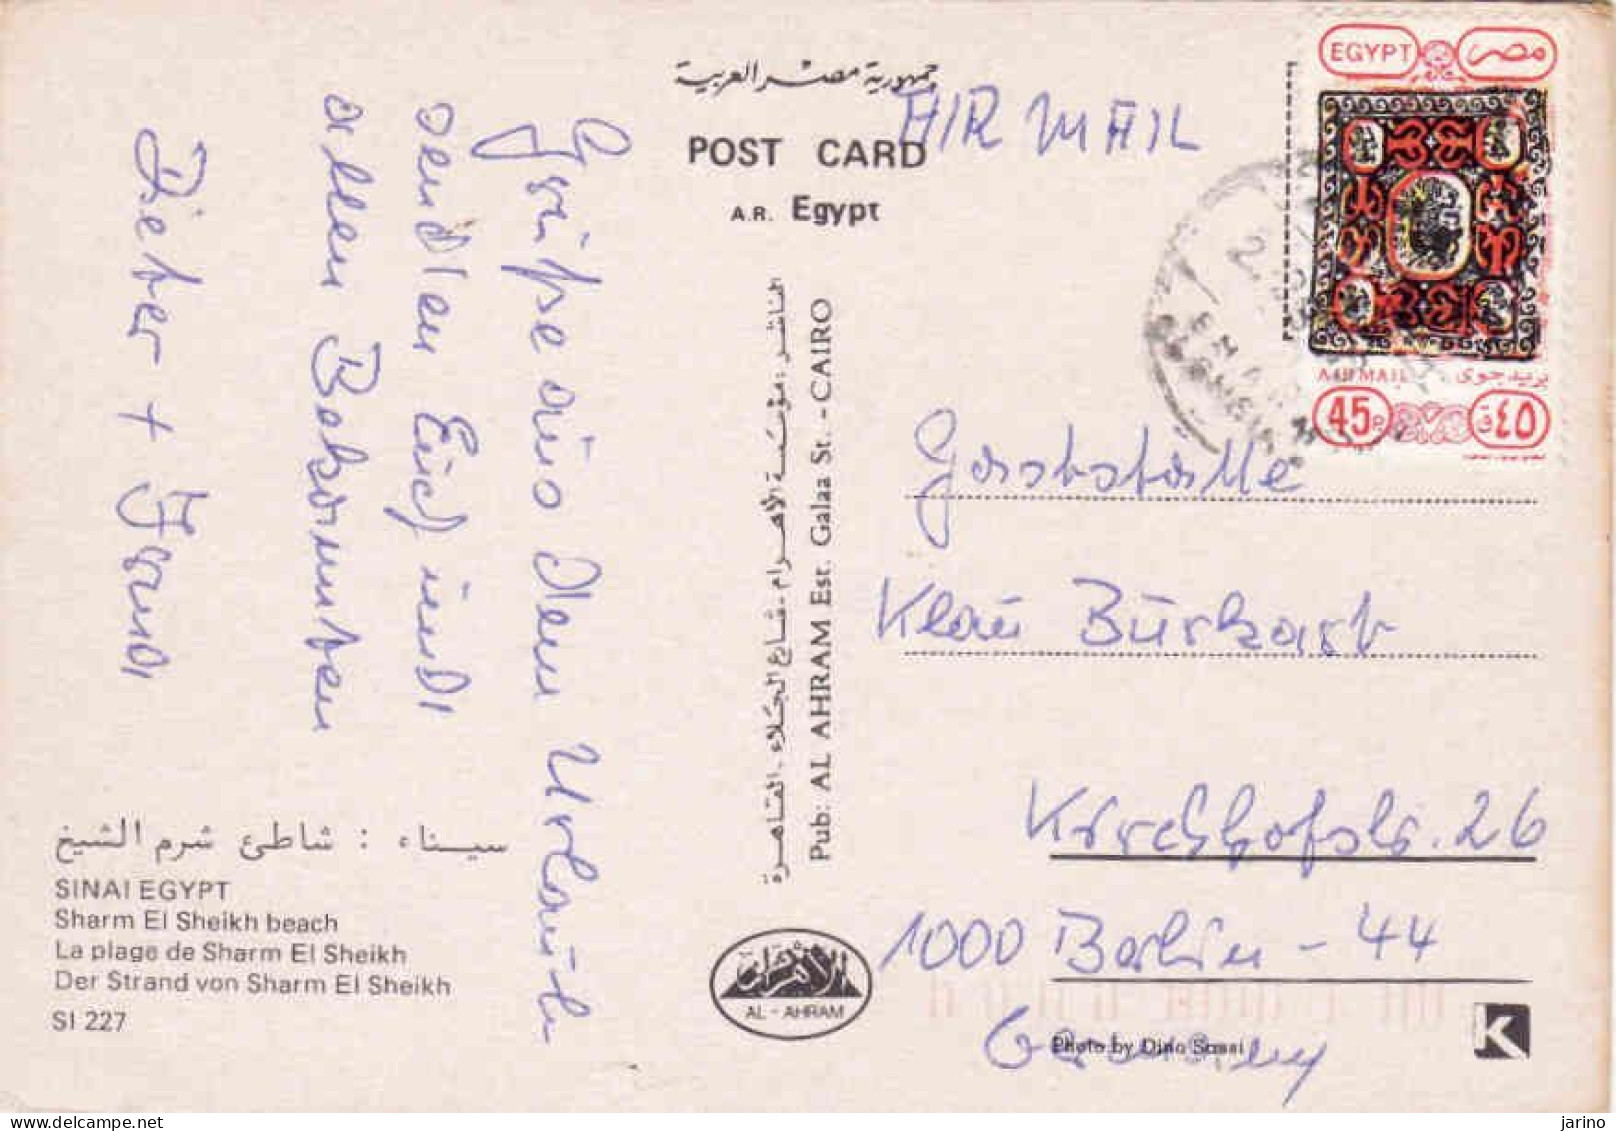 جمهورية مصر العربية
POST CARD
A.R. Egypt
AIR MAIL
EGYPT مصر
AIR MAIL بريد جوى
45P ٤٥ق
Grüße aus dem Urlaub
senden Euch und
allen Bekannten
Dieter + Traudl
الناشر : مؤسسة الأهرام - شارع الجلاء - القاهرة
Pub: AL AHRAM Est. Galaa St. - CAIRO
Gaststätte
Klaus Burkart
Kirchhofstr. 26
1000 Berlin - 44
Germany
سيناء : شاطئ شرم الشيخ
SINAI EGYPT
Sharm El Sheikh beach
La plage de Sharm El Sheikh
Der Strand von Sharm El Sheikh
SI 227
الأهرام
AL - AHRAM
Photo by Dino Sassi
K
delcampe.net
jarino